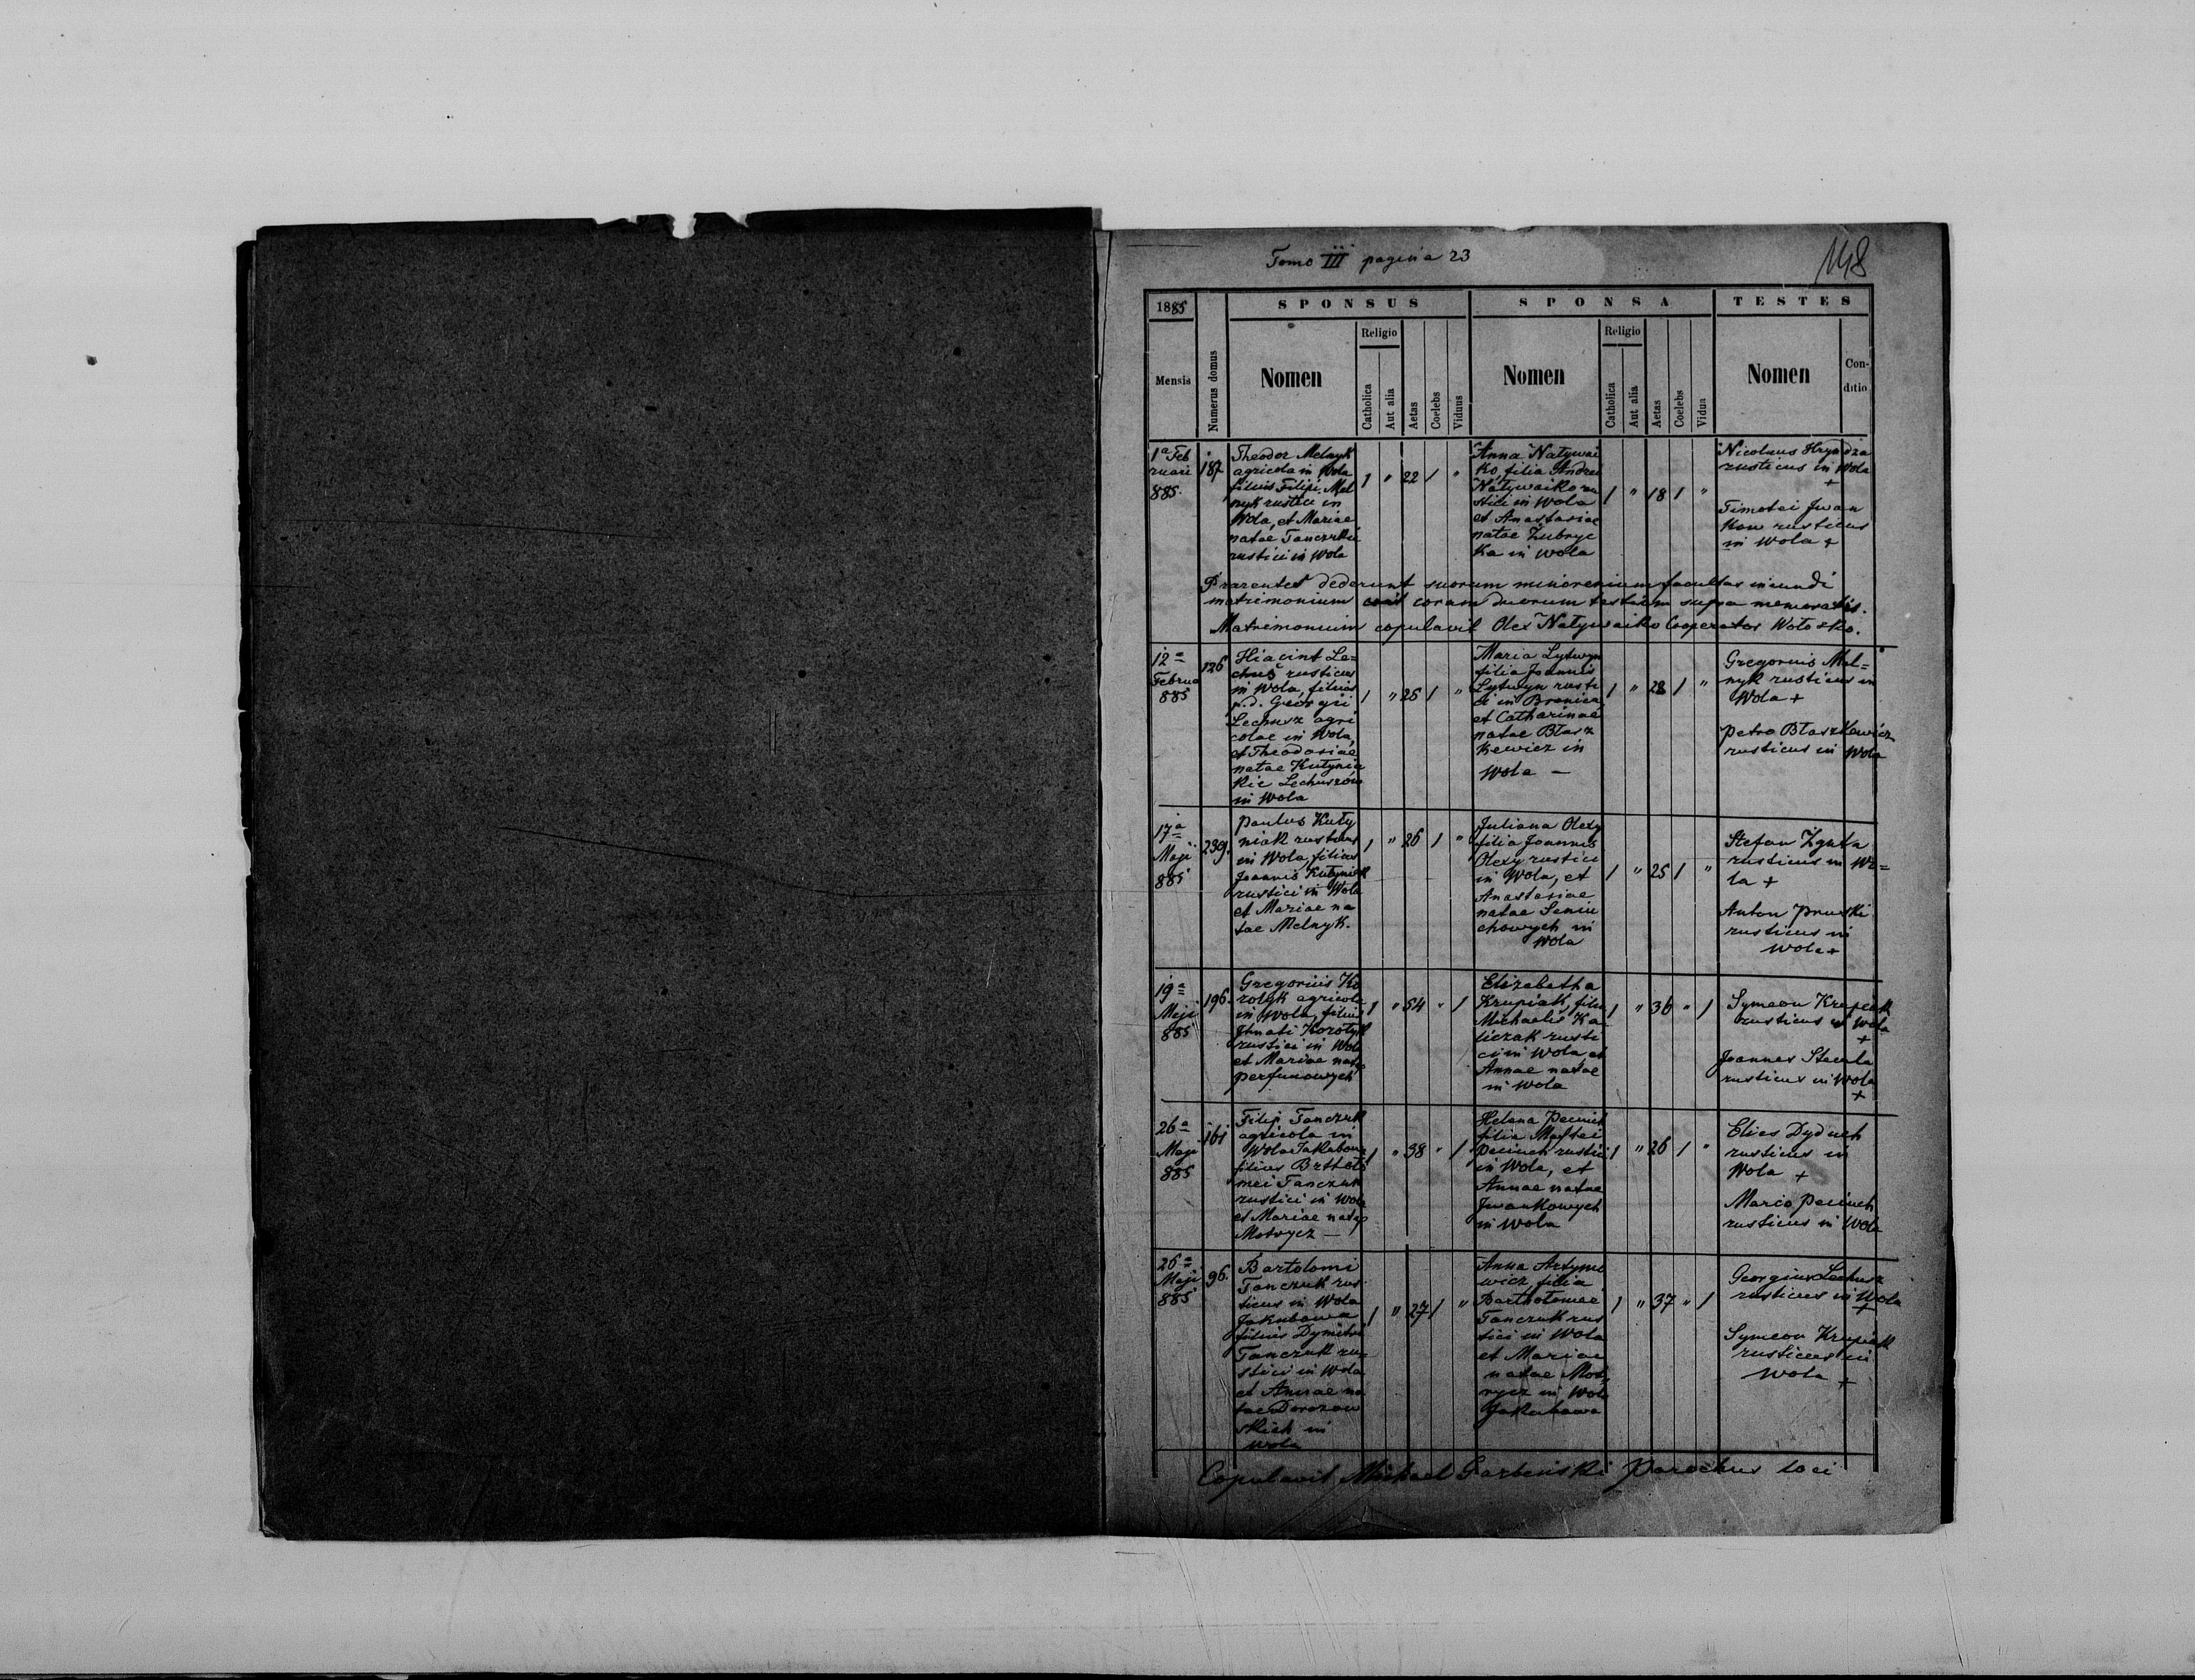 Tomo III pagina 23
148
1885
SPONSUS
SPONSA
TESTES
Mensis
Numerus domus
Nomen
Religio
Catholica
Aut alia
Aetas
Coelebs
Viduus
Nomen
Religio
Catholica
Aut alia
Aetas
Coelebs
Vidua
Nomen
Con-
ditio
1a Feb
ruari
885.
187
Theodor Melnyk
agricola in Wola
filius Filipi Mel
nyk rustici in
Wola, et Mariae
natae Tanczuk
rustici in Wola
1 " 22 1 "
Anna Natywai
ko, filia Andrei
Natywaiko ru
stici in Wola
et Anastasiae
natae Zubryc
ka in Wola
1 " 18 1 "
Nicolaus Hryndza
rusticus in Wola
+
Timotei Jwan
kow rusticus
in Wola +
Prarentes dederunt suorum minorenium facultas ineundi
matrimonium coram duorum testium supra memoratis.
Matrimonium copulavit Olex Natywaiko Cooperator
12a
Februa
885
126
Hiacint Le=
chus rusticus
in Wola, filius
p.d. Georgii
Lechusz agri
colae in Wola,
et Theodosiae
natae Kutynia
kic Lechuszów
in Wola
1 " 25 1 "
Maria Lytwyn
filia Joannis
Lytwyn rusti
ci in Bronica
et Catharinae
natae Błasz
kewicz in
Wola —
1 " 28 1 "
Gregorius Mel=
nyk rusticus in
Wola +
Petro Błaszkewicz
rusticus in Wola
17a
Maji
885
239.
Paulus Kuty
niak rusticus
in Wola, filius
Joannis Kutyniak
rustici in Wola
et Mariae na
tae Melnyk.
1 " 26 1 "
Juliana Olexy
filia Joannis
Olexy rustici
in Wola, et
Anastasiae
natae Seniu
chowych in
Wola
1 " 25 1 "
Stefan Zguta
rusticus in Wo=
la +
Anton Pruski
rusticus in
Wola +
19a
Maji
885
196.
Gregorius Ko
rotyk agricola
in Wola, filius
Ihnati Korotyk
rustici in Wola
et Mariae natae
Perfunowych
1 " 54 " 1
Elizabetha
Krupiak, filia
Michaelis Ka
liczak rusti
ci in Wola et
Annae natae
in Wola
1 " 36 " 1
Symeon Krupiak
rusticus in Wola
+
Joannes Stecula
rusticus in Wola
+
26a
Maji
885
161
Filip Tanczuk
agricola in
Wola Jakubowa
filius Barthoło
mei Tanczuk
rustici in Wola
et Mariae natae
Motrycz —
1 " 38 " 1
Helena Peciuch
filia Mathei
Peciuch rustici
in Wola, et
Annae natae
Jwankowych
in Wola
1 " 26 1 "
Elies Dyduch
rusticus in
Wola +
Marco Peciuch
rusticus in Wola
26a
Maji
885
96.
Bartolomi
Tanczuk rus
ticus in Wola
Jakubowa
filius Dymitri
Tanczuk ru=
stici in Wola
et Annae na
tae Dorozow
skich in
Wola
1 " 27 1 "
Anna Artymo
wicz, filia
Bartholomei
Tanczuk rus
tici in Wola
et Mariae
natae Mot
rycz in Wola
Jakubowa
1 " 37 " 1
Georgius Lechusz
rusticus in Wola
+
Symeon Krupiak
rusticus in
Wola +
Copulavit Michael Garbinski Parochus loci